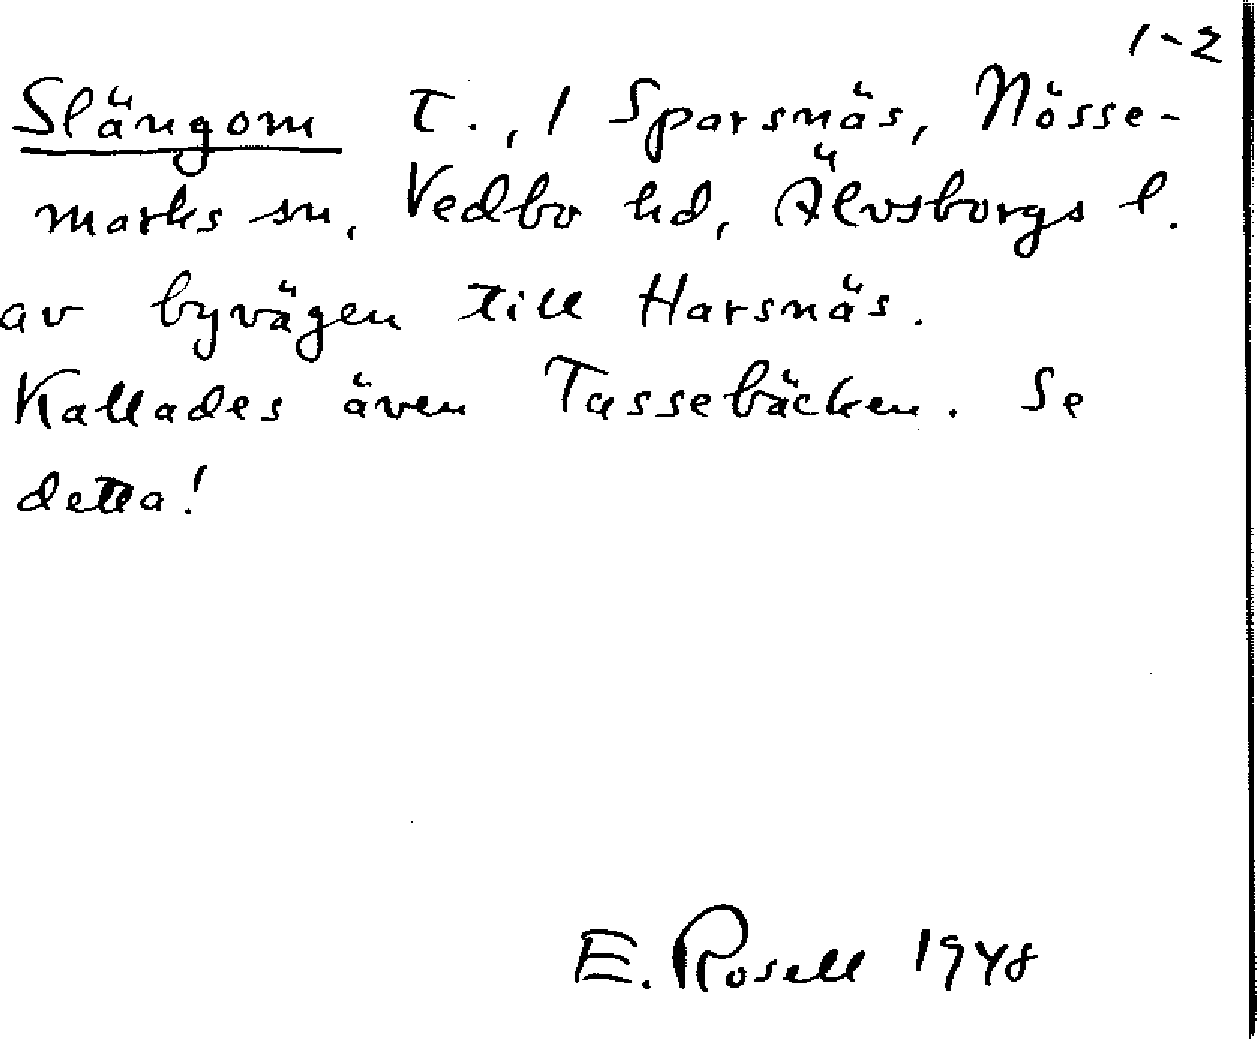 1-2
Slängom T., 1 Sparsnäs, Nösse-
marks sn, Vedbo hd, Älvsborgs l.
av byvägen till Harsnäs.
Kallades även Tassebäcken. Se
detta!
E. Rosell 1948